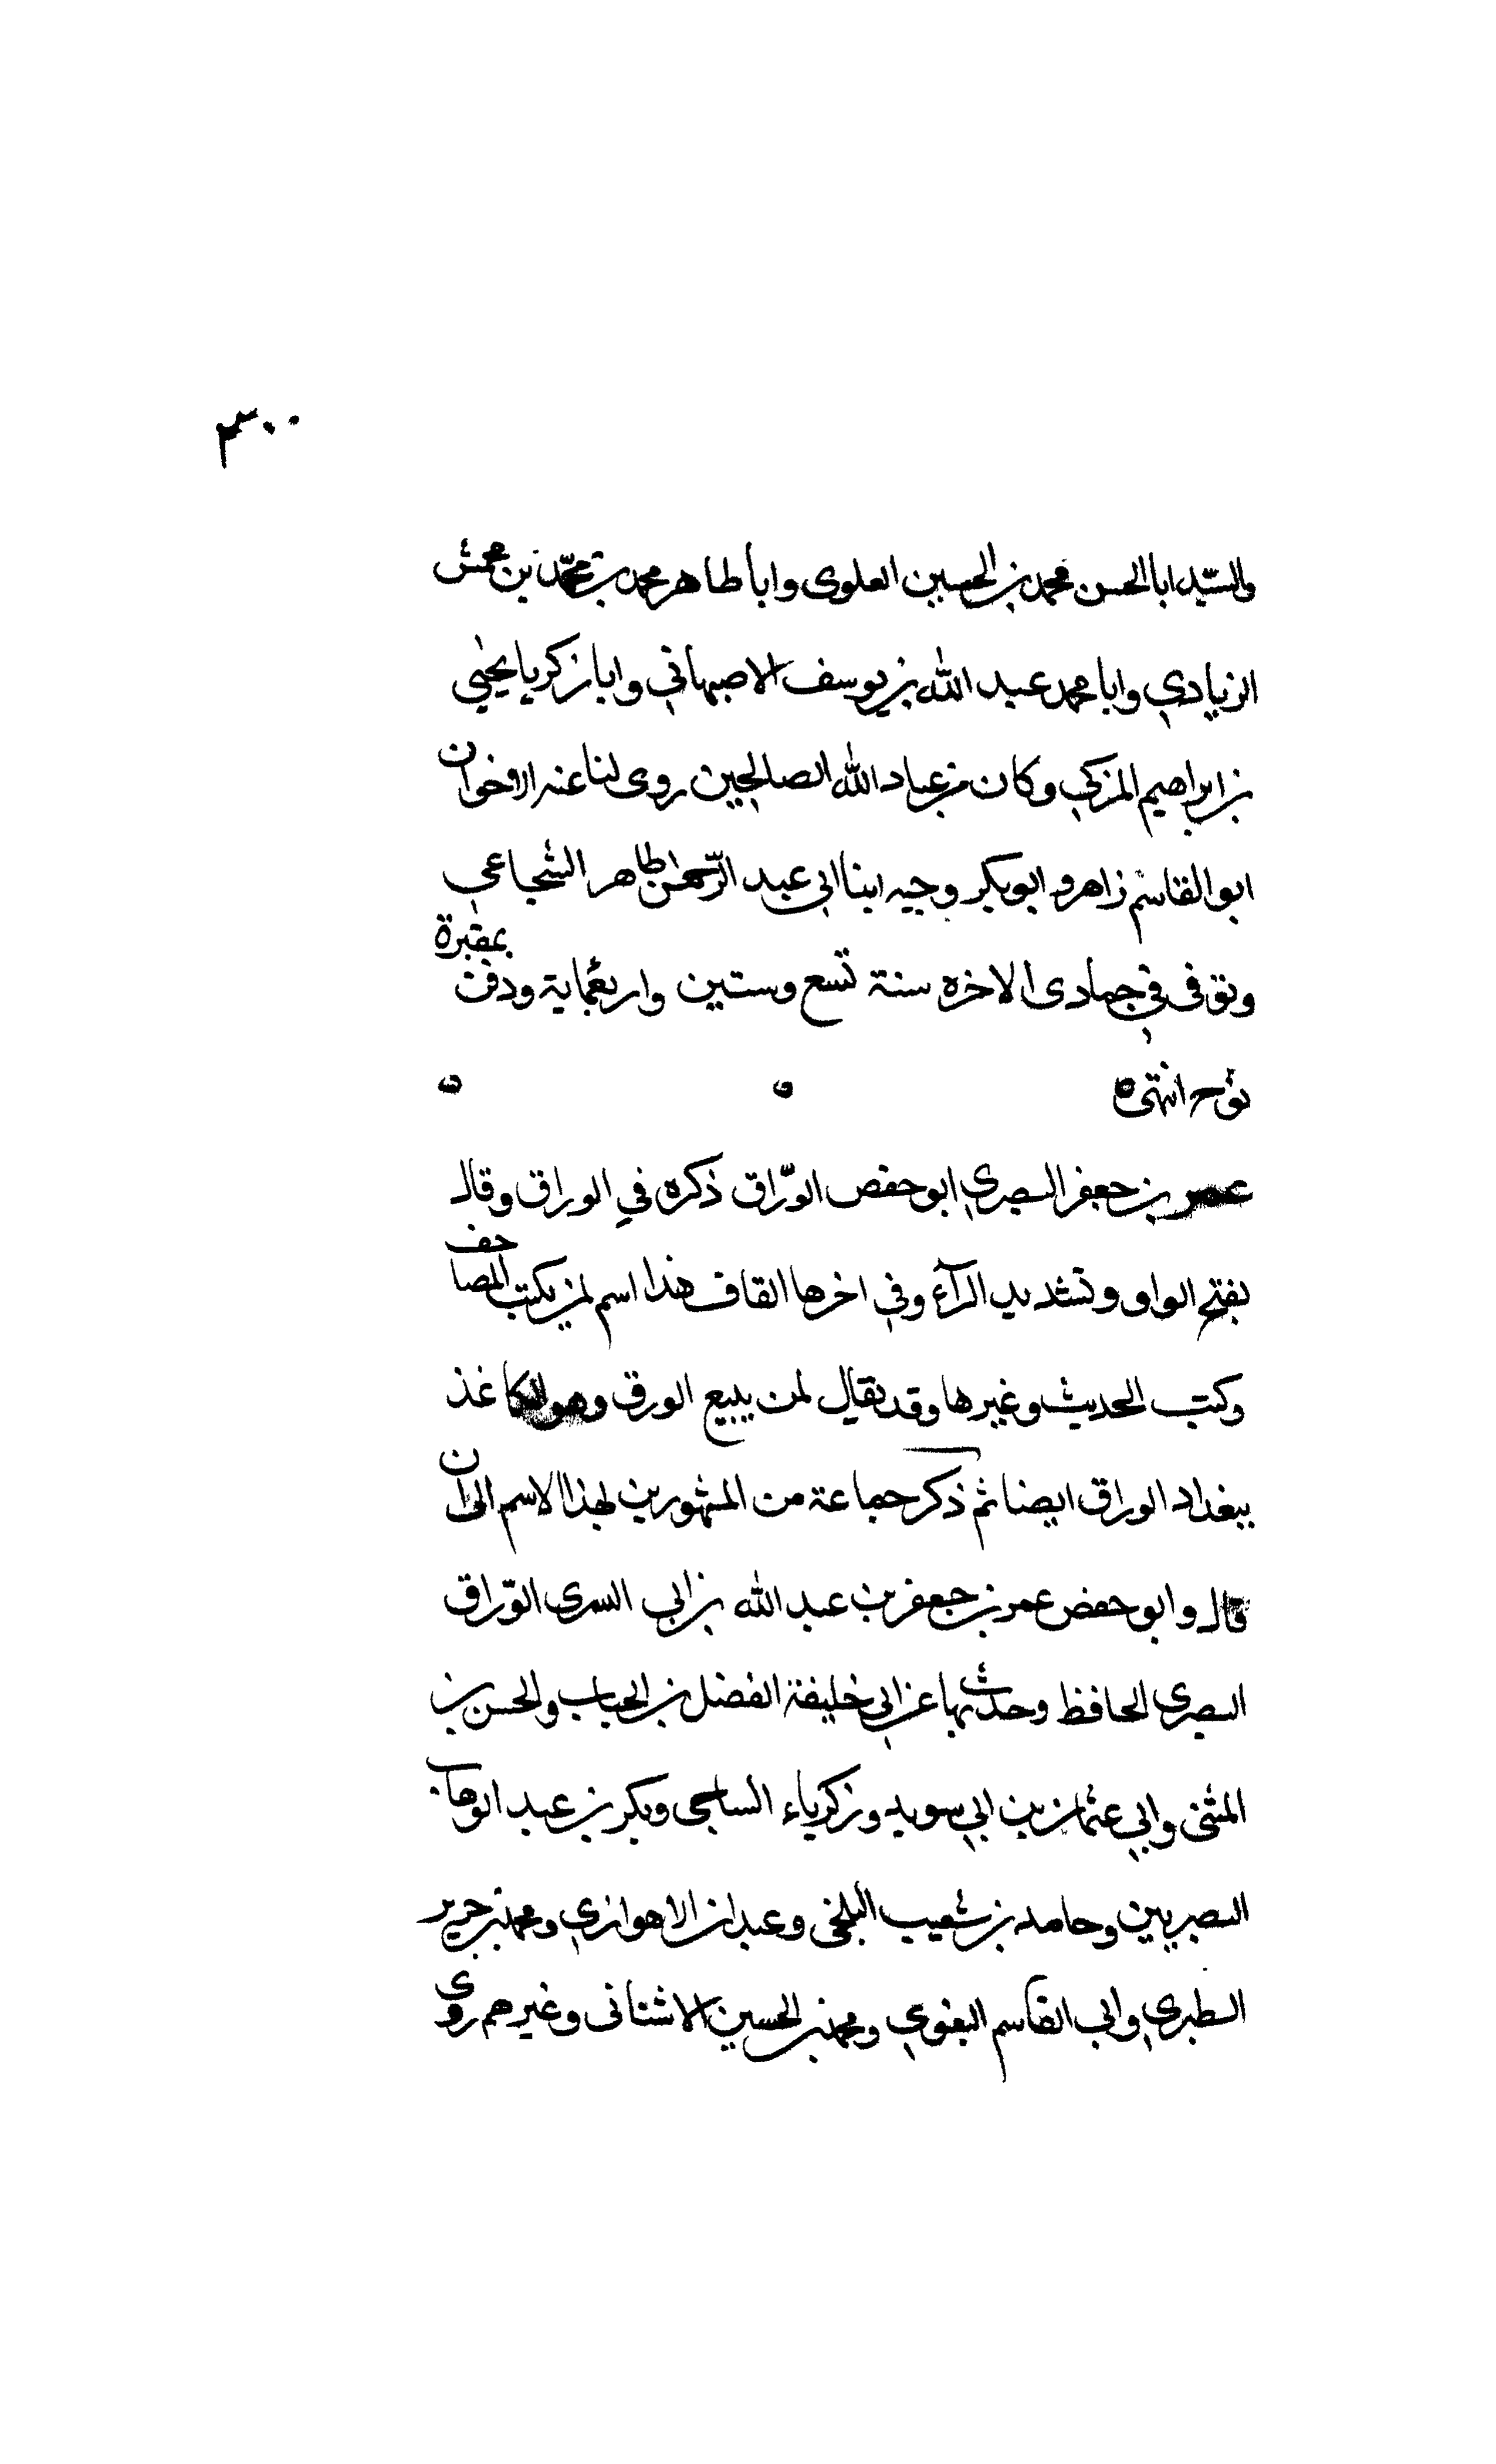 ٣٠٠
والسيّد ابا الحسن محمد بن الحسين العلوى وابا طاهر محمد بن محمّد بن محمش
الزيادي وابا محمد عبد الله بن يوسف الاصبهاني وابا زكريا يحيى
بن ابراهيم المزكي وكان من عباد الله الصالحين روى لنا عنه الاخوان
ابو القاسم زاهر وابو بكر وجيه ابنا ابي عبد الرّحمن طاهر الشجاعي
وتوفى في جمادى الاخره سنة تسع وستين واربعماية ودفن بمقبرة
نوح انتهى
عمر بن جعفر البصري ابو حفص الورّاق ذكره في الوراق وقال
بفتح الواو وتشديد الرآء وفي اخرها القاف هذا اسم لمن يكتب المصاحف
وكتب الحديث وغيرها وقد يقال لمن يبيع الورق وهو الكاغذ
ببغداد الوراق ايضا ثم ذكر جماعة من المشهورين لهذا الاسم الى ان
قال وابو حفص عمر بن جعفر بن عبد الله بن ابي السرى الورّاق
البصرى الحافظ وحدث بها عن ابي خليفة الفضل بن الحباب والحسن بن
المثنى وابي عثمان بن ابي سويد وزكرياء الساجى وبكر بن عبد الوهاب
البصريين وحامد بن شعيب البلخى وعبدان الاهوازي ومحمد بن جرير
الطبري وابي القاسم البغوي ومحمد بن الحسين الاشنانى وغيرهم روى